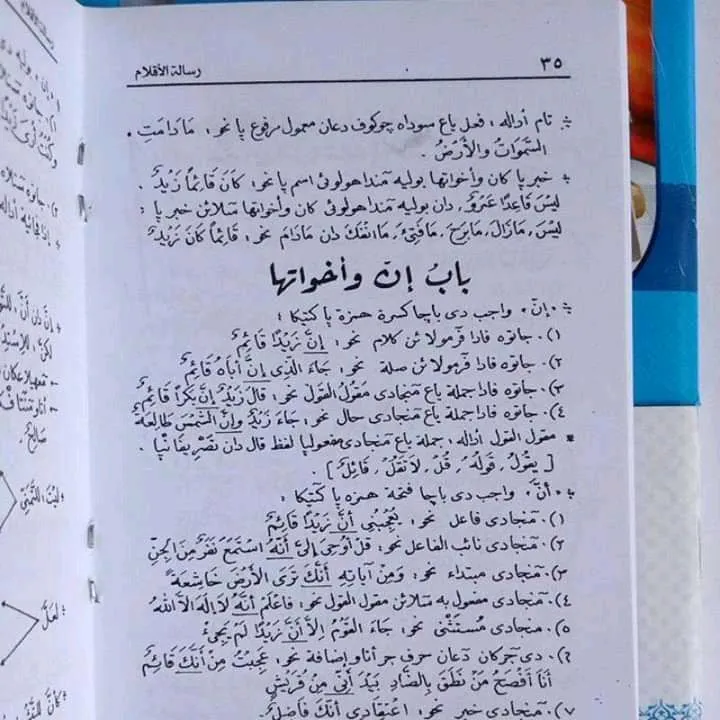 ٣٥
رسالة الأقلام
* تام أداله ، فعل ياڠ سوداه چوكوف دڠان معمول مرفوع ڽا نحو : مَادَامَتِ
السَّمَوَاتُ وَالْأَرْضُ .
* خبر ڽا كان وأخواتها بوليه منداهولوئى اسم ڽا نحو : كَانَ قَائِمًا زَيْدٌ .
لَيْسَ قَاعِدًا عَمْرٌو . دان بوليه منداهولوئى كان وأخواتها سلائن خبر ڽا :
لَيْسَ ، مَازَالَ ، مَابَرِحَ ، مَافَتِئَ ، مَاانْفَكَّ دان مَادَامَ نحو : قَائِمًا كَانَ زَيْدٌ
بابُ إنّ وأخواتها
* إنّ ، واجب دى باچا كسرة همزة ڽا كتيكا :
١) . جاتوه فادا فرمولائن كلام نحو : إِنَّ زَيْدًا قَائِمٌ
٢) . جاتوه فادا فرمولائن صلة نحو : جَاءَ الَّذِى إِنَّ أَبَاهُ قَائِمٌ
٣) . جاتوه فادا جملة ياڠ منجادى مَقُولُ القَوْل نحو : قَالَ زَيْدٌ إِنَّ بَكْرًا قَائِمٌ
٤) . جاتوه فادا جملة ياڠ منجادى حال نحو : جَاءَ زَيْدٌ وَإِنَّ الشَّمْسَ طَالِعَةٌ
* مقول القول أداله ، جملة ياڠ منجادى مفعول ڽا لفظ قال دان تَصْرِيفَانْ ڽا .
[ يَقُولُ ، قَوْلُهُ ، قُلْ ، لَاتَقُلْ ، قَائِلٌ ] .
* أنّ ، واجب دى باچا فتحة همزة ڽا كتيكا :
١) . منجادى فاعل نحو : يُعْجِبُنِى أَنَّ زَيْدًا قَائِمٌ
٢) . منجادى نائب الفاعل نحو : قُلْ أُوحِىَ إِلَىَّ أَنَّهُ اسْتَمَعَ نَفَرٌ مِنَ الْجِنِّ
٣) . منجادى مبتداء نحو : وَمِنْ آيَاتِهِ أَنَّكَ تَرَى الْأَرْضَ خَاشِعَةً
٤) . منجادى مفعول به سلائن مقول القول نحو : فَاعْلَمْ أَنَّهُ لَاإِلَهَ إِلَّا اللهُ
٥) . منجادى مُسْتَثْنَى نحو : جَاءَ القَوْمُ إِلَّا أَنَّ زَيْدًا لَمْ يَجِئْ
٦) . دى جركان دڠان حرف جر أتاو إضافة نحو : عَجِبْتُ مِنْ أَنَّكَ قَائِمٌ
أَنَا أَفْصَحُ مَنْ نَطَقَ بِالضَّادِ بَيْدَ أَنِّى مِنْ قُرَيْشٍ
٧) . منجادى خبر نحو : اعْتِقَادِى أَنَّكَ فَاضِلٌ .